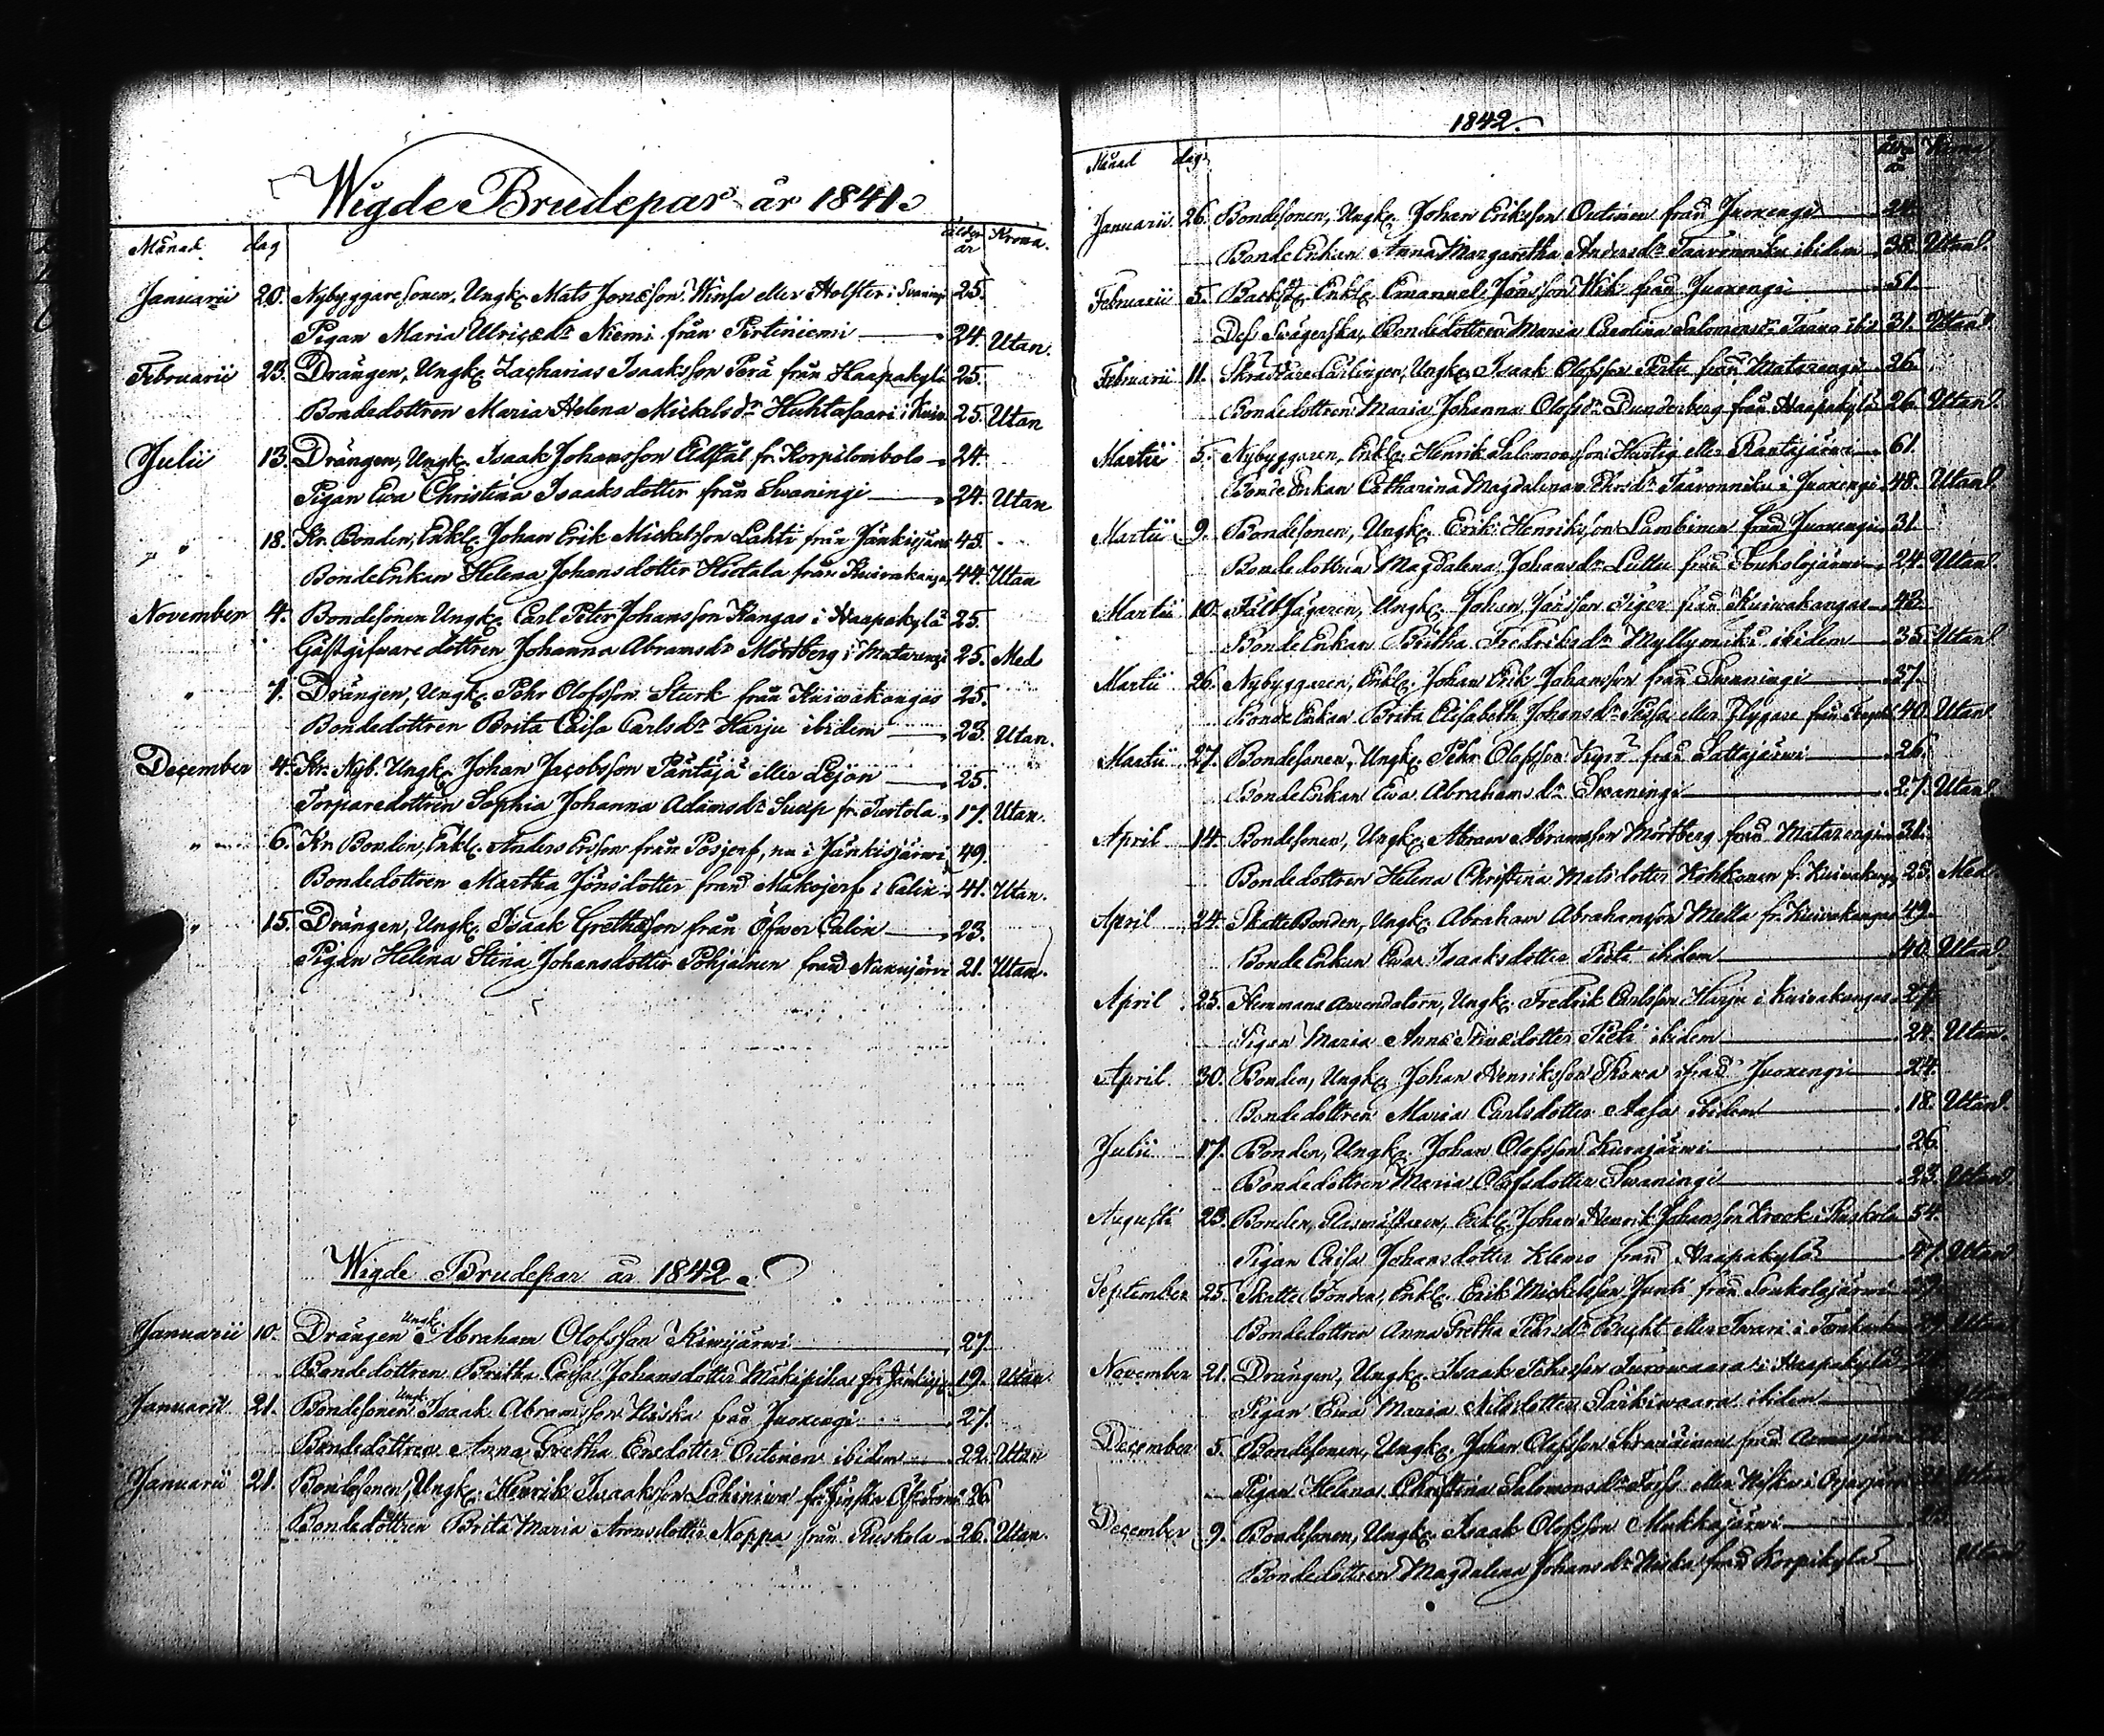 Wigde Brudepar år 1841.
Månad dag Ålder år Krona.
Januarii 20. Nybyggaresonen, Ungk. Mats Jonsson Winsa eller Holster i Svaningi 25.
Pigan Maria Ulricædr Niemi från Pirtiniemi 24. Utan.
Februarii 23. Drängen, Ungk. Zacharias Isaksson Perä från Haapakylä 25.
Bondedottren Maria Helena Mickelsdr Huhtasaari i Kuiv. 25. Utan
Julii 13. Drängen, Ungk. Isaak Johansson fr. Korpilombolo 24.
Pigan Ewa Christina Isaaksdotter från Swaningi 24. Utan
" " 18. Kr. Bonden, Enkl. Johan Erik Mickelsson Lahti från Jänkisjärvi 45.
BondeEnkan Helena Johansdotter Hietala från Kuivakangas 44. Utan
November 4. Bondesonen Ungk. Carl Peter Johansson Kangas i Haapakylä 25.
Gästgifvaredottren Johanna Abramsdr Mörtberg i Matarengi 25. Med
" 7. Drängen, Ungk. Pehr Olofsson Stark från Kuivakangas 25.
Bondedottren Brita Caisa Carlsdr Harju ibidem 23. Utan.
December 4. Kr. Nyb. Ungk. Johan Jacobsson Päntäjä eller Lejon 25.
Torparedottren Sophia Johanna Adamsdr fr. Turtola 17. Utan.
" 6. Kr. Bonden, Enkl. Anders Ersson från Posjerf, nu i Jänkisjärvi 49.
Bondedottren Martha Jönsdotter från Råkojerf i Calix 41. Utan.
" 15. Drängen, Ungk. Isaak Grethæson från Öfwer Calix 23.
Pigan Helena Stina Johansdotter Pohjainen från Nuuujärvi 21. Utan.
Wigde Brudepar år 1842.
Januarii 10. Drängen Ungk. Abraham Olofsson Kiwijärwi 27.
Bondedottren Britha Caisa Johansdotter Mäkipiha fr. Jänkisj. 19. Utan
Januarii 21. Bondesonen Ungk. Isaak Abramsson Niska från Juoxengi 27.
Bondedottren Anna Gretha Ersdotter Outinen ibidem 22. Utan
Januarii 21. Bondesonen, Ungk. Henrik Isaaksson Lohiniwa fr. 26
Bondedottren Brita Maria Aronsdotter Noppa från Ruskola 26. Utan.
1842.
Månad dag Ålder år Krona
Januarii 26. Bondesonen, Ungk. Johan Eriksson Outinen från Juoxengi 24.
BondeEnkan Anna Margaretha Andersdr Taavonniku ibidem 38. Utan
Februarii 5. Enkl. Emanuel Jönsson Wik från Juoxengi 51.
Dess Svägerska, Bondedottren Maria Carolina Salomonsdr ibid. 31. Utan
Februarii 11. Skräddare Lärlingen, Ungk. Isaak Olofsson Pertu från Matarengi 26.
Bondedottren Maria Johanna Olofsdr Dunderberg från Haapakylä 26. Utan
Martii 5. Nybyggaren, Enkl. Henrik Salomonsson Hurtig eller Rantajärwi 61.
BondeEnkan Catharina Magdalena Pehrsdr Taavonniku i Juoxengi 48. Utan
Martii 9. Bondesonen, Ungk. Erik Henriksson Lambinen från Juoxengi 31.
Bondedottren Magdalena Johansdr Luttu från Soukolojärwi 24. Utan
Martii 10. FältJägaren, Ungk. Johan Jönsson Tiger från Kuivakangas 43.
BondeEnkan Britha Fredriksdr Myllymäki ibidem 35. Utan
Martii 26. Nybyggaren, Enkl. Johan Erik Johansson från Svanningi 37.
BondeEnkan Brita Elisabeth Johansdr eller Flygare från 40. Utan
Martii 27. Bondesonen, Ungk. Pehr Olofsson Kyrö från Lattajärwi 26.
BondeEnkan Ewa Abrahamsdr Swaningi 27. Utan
April 14. Bondesonen, Ungk. Abram Abramsson Mörtberg från Matarengi 31.
Bondedottren Helena Christina Matsdotter Kohkonen f. Kuivakangas 25. Med
April 24. SkatteBonden, Ungk. Abraham Abrahamsson Mella fr. Kuivakangas 49.
BondeEnkan Ewa Isaaksdotter ibidem 40. Utan
April 25. Hemmans arrendatorn, Ungk. Fredrik Carlsson Harju i Kuivakangas 27.
Pigan Maria Annæ Stinædotter ibidem 24. Utan.
April 30. Bonden, Ungk. Johan Henriksson från Juoxengi 24.
Bondedottren Maria Carlsdotter Aasa ibidem 18. Utan.
Julii 17. Bonden, Ungk. Johan Olofsson Kurajärwi 26.
Bondedottren Maria Olofsdotter Swaningi 23. Utan
Augusti 23. Bonden, Glasmästaren, Enkl. Johan Henrik Johansson Krook i Ruskola 54.
Pigan Caisa Johansdotter Klemo från Haapakylä 47. Utan
September 25. SkatteBonden, Enkl. Erik Mickelsson Junti från Soukolojärwi
Bondedottren Anna Gretha Pehrsdr Bucht eller
November 21. Drängen, Ungk. Isaak i Haapakylä
Pigan Ewa Maria Nilsdotter Särkiwaara ibidem
December 5. Bondesonen, Ungk. Johan Olofsson från
Pigan Helena Christina Salomonsdr eller Niska i
December 9. Bondesonen, Ungk. Isaak Olofsson Mukkajärwi
Bondedottren Magdalena Johansdr Niska från Korpikylä Utan